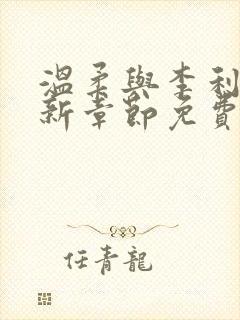 溫柔與李利
新章節免費
任青龍